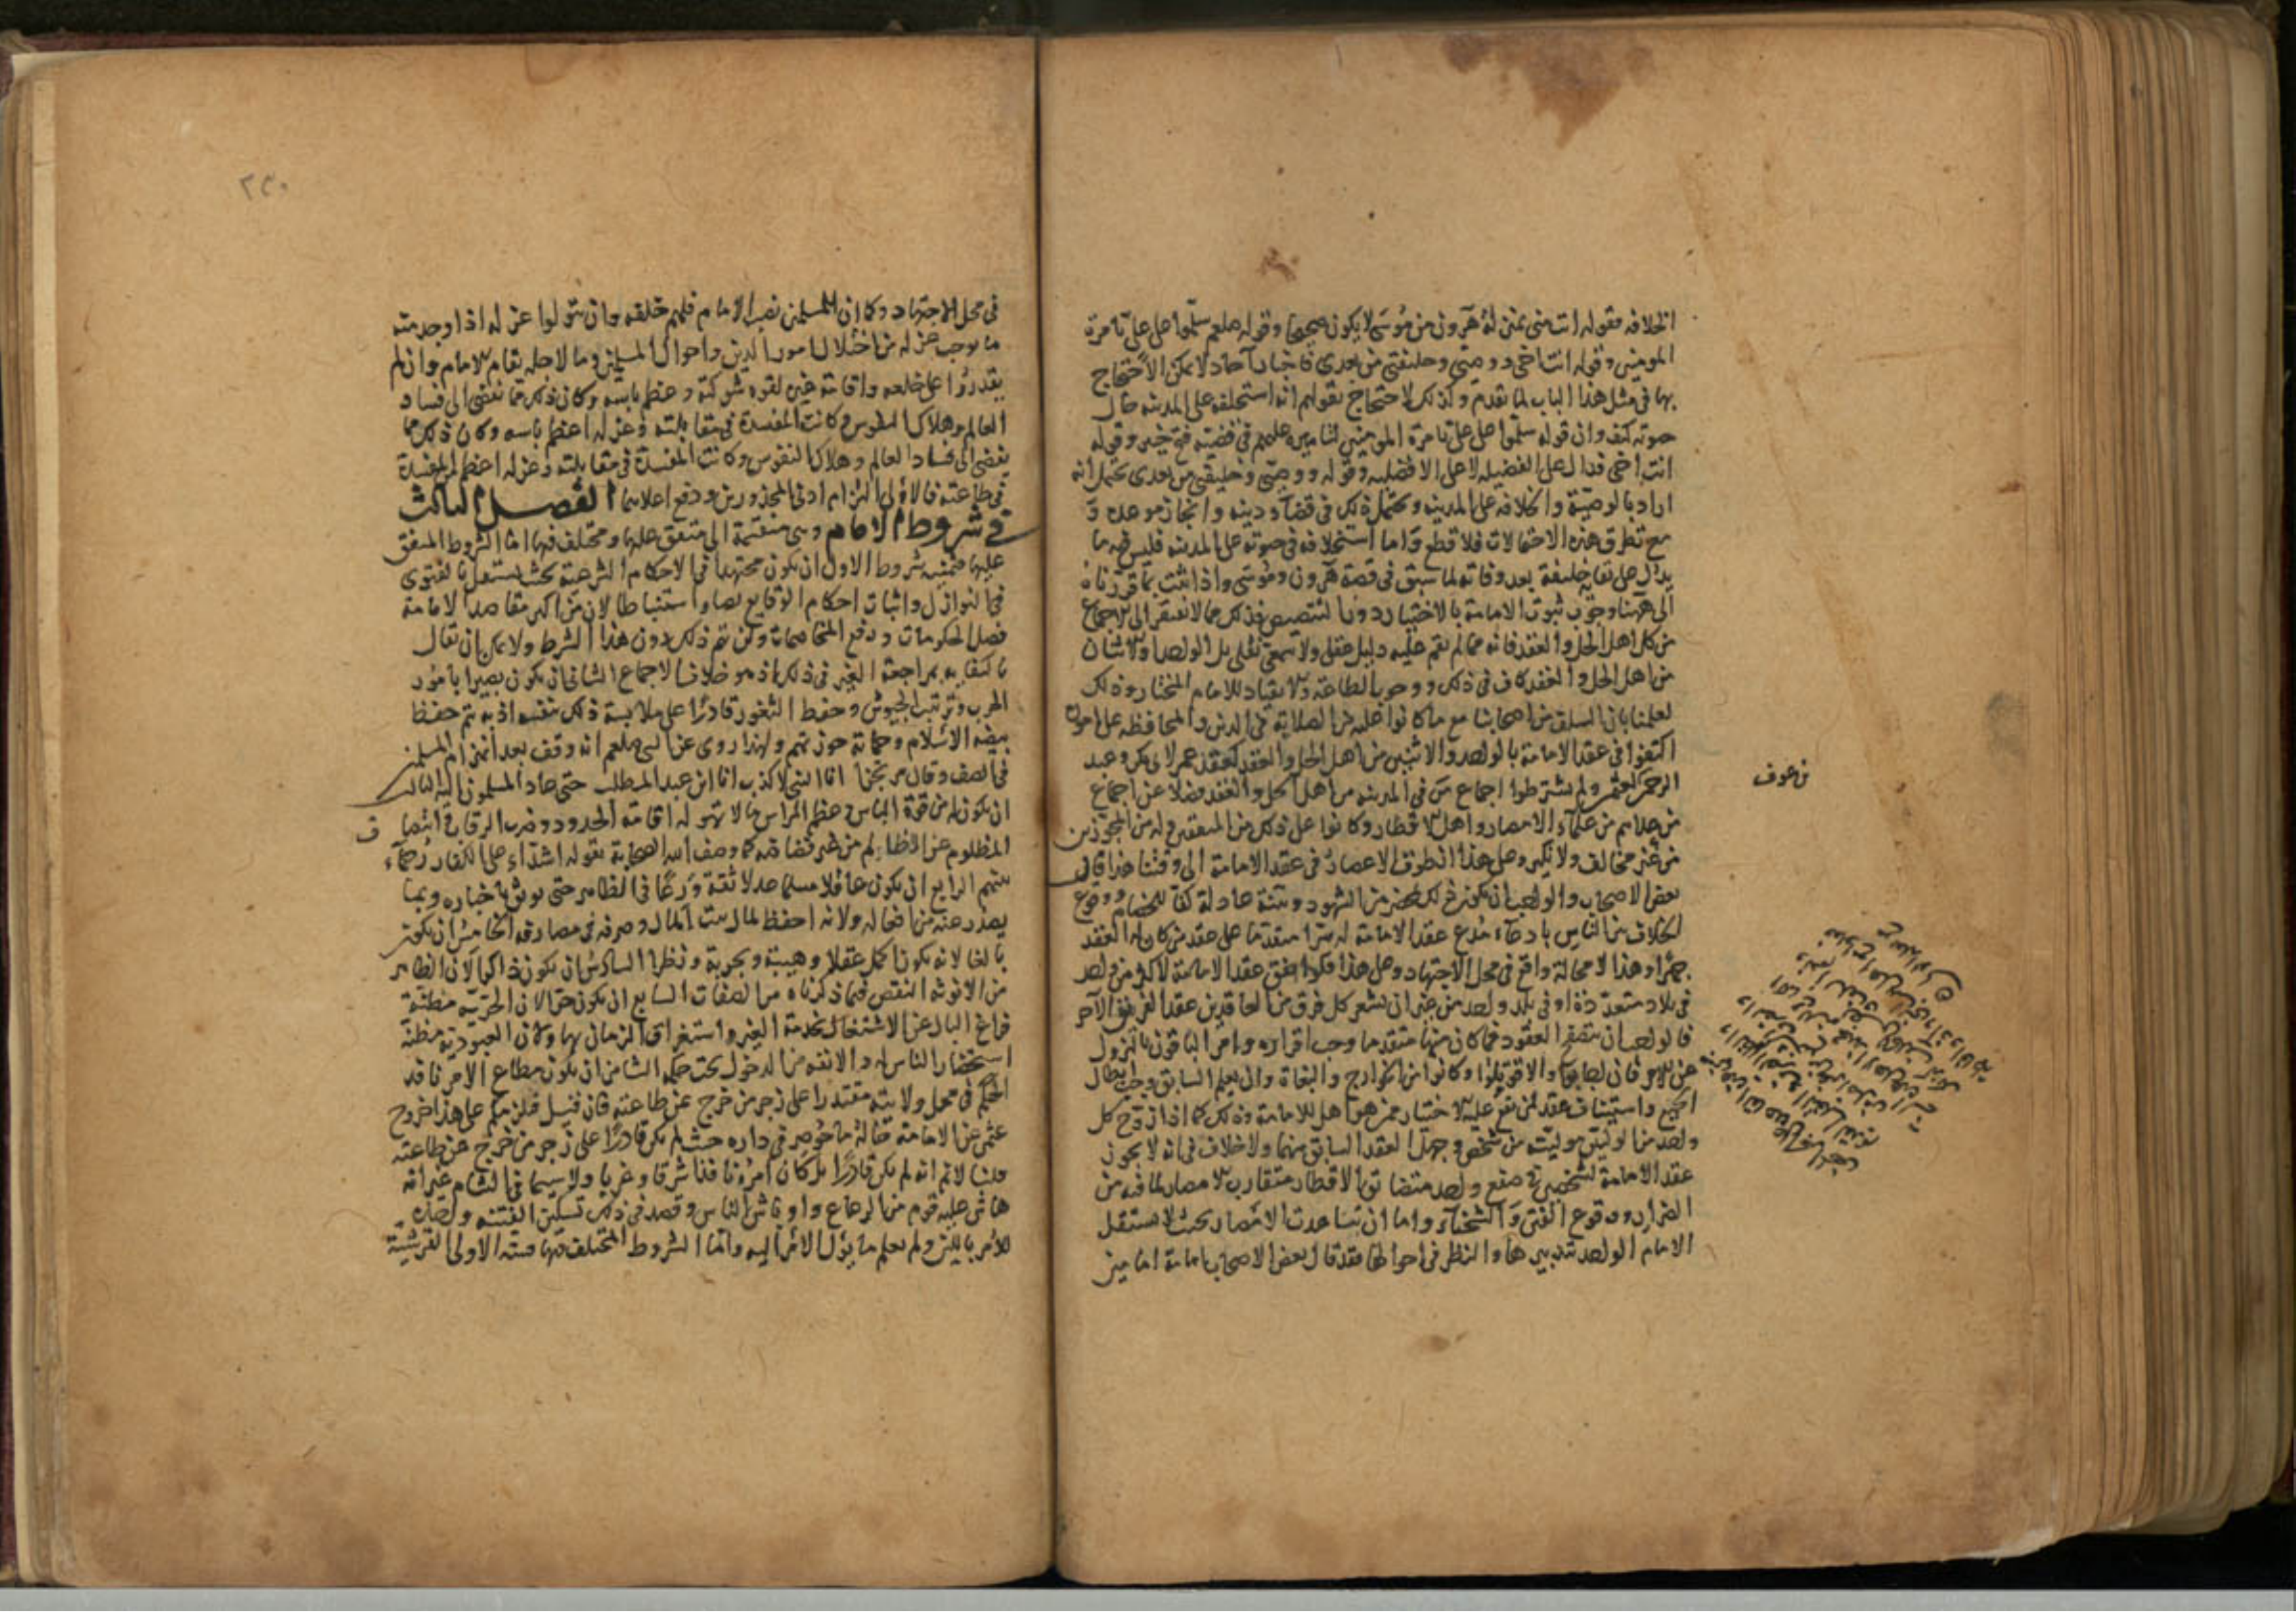 الخلافه فقوله انت مني بمنزلة هرون من موسى لا يكون صحيحا وقوله صلعم سلّموا على علي بامرة
المومنين وقوله انت اخي ووصيّي وخليفتي من بعدي فاخبار آحاد لا يمكن الاحتجاج
بها في مثل هذا الباب لما تقدم وكذلك الاحتجاج بقولهم انه استخلفه على المدينه حال
حيوته كيف وان قوله سلّموا على علي بامرة المومنين لتاميره عليهم في قضيته فتح خيبر وقوله
انت اخي فدال على الفضيله لا على الافضليه وقوله ووصيّي وخليفتي من بعدي يحتمل انه
اراد بالوصيّة والخلافه على المدينه ويحتمل ذلك في قضآء دينه وانجاز موعده و
مع تطرق هذه الاحتمالات فلا قطع واما استخلافه في حيوته على المدينه فليس فيه ما
يدل على بقايه خليفة بعد وفاته لما سبق في قصة هرون وموسى واذا ثبت بما قررناه
الى ههنا وجوب ثبوت الامامة بالاختيار دون التنصيص فذلك مما لا يفتقر الى الاجماع
من كل اهل الحل والعقد فانه مما لم يقم عليه دليل عقلي ولا سمعي نقلي بل الواحد والاثنان
من اهل الحل والعقد كاف في ذلك ووجوب الطاعة والانقياد للامام المختار وذلك
لعلمنا بان السلف من اصحابنا مع ما كانوا عليه من الصلابة في الدين والمحافظه على امور
اكتفوا في عقد الامامة بالواحد والاثنين من اهل الحل والعقد كعقد عمر لابي بكر وعبد
الرحمن لعثمن ولم يشترطوا اجماع من في المدينه من اهل الحل والعقد فضلا عن اجماع
من عداهم من علمآء الامصار واهل الاقطار وكانوا على ذلك من المتفقين وله من المجوّزين
من غير مخالف ولا نكير وعلى هذا انطوت الاعصار في عقد الامامة الى وقتنا هذا قال
بعض الاصحاب والواجب ان يكون ذلك بمحضر من الشهود وبينة عادلة كفا للخصام ووقوع
الخلاف بين الناس بادعآء مدع عقد الامامة له سرا متقدما على عقد من كان له العقد
جهرا وهذا لا محالة واقع في محل الاجتهاد وعلى هذا فلو اتفق عقد الامامة لاكثر من واحد
في بلاد متعددة او في بلد واحد من غير ان يشعر كل فرق من العاقدين عقد الفريق الآخر
فالواجب ان يتصفح العقود فما كان منها متقدما وجب اقراره وامر الباقون بالنزول
عن الامر فان اجابوا والا قوتلوا وكانوا من الخوارج والبغاة وان لم يعلم السابق وجب ابطال
الجميع واستيناف عقد لمن يقع عليه الاختيار ممن هو اهل للامامة وذلك كما اذا زوج كل
واحد من الوليين موليته من شخص وجهل العقد السابق منهما ولا خلاف في انه لا يجوز
عقد الامامة لشخصين في صقع واحد متضايق الاقطار متقارب الامصار لما فيه من
الضرار ووقوع الفتن والشحنآء واما ان تباعدت الامصار بحيث لا يستقل
الامام الواحد بتدبيرها والنظر في احوالها فقد قال بعض الاصحاب بامامة امامين
بن عوف
٢٣٠
في محل الاجتهاد وكما ان للمسلمين نصب الامام فلهم خلعه وان يتولوا عزله اذا وجد منه
ما يوجب عزله من اختلال امور الدين واحوال المسلمين وما لاجله يقام الامام وان لم
يقدروا على خلعه واقامة غيره لقوه شوكته وعظم باسه وكان ذلك مما يفضي الى فساد
العالم وهلاك النفوس وكانت المفسدة في مقابلته وعزله اعظم باسه وكان ذلك مما
يفضي الى فساد العالم وهلاك النفوس وكانت المفسدة في مقابلته وعزله اعظم من المفسدة
في طاعته فالاولى التزام ادنى المحذورين ودفع اعلاهما الفصل الثالث
في شروط الامام وهي منقسمة الى متفق عليها ومختلف فيها اما الشروط المتفق
عليها فثمنيه شروط الاول ان يكون مجتهدا في الاحكام الشرعيه بحيث يستقل بالفتوى
في النوازل واثبات احكام الوقايع نصا واستنباطا لان من اكبر مقاصد الامامة
فصل الحكومات ودفع المخاصمات ولن يتم ذلك دون هذا الشرط ولا يمكن ان يقال
باكتفايه بمراجعة الغير في ذلك اذ هو خلاف الاجماع الثاني ان يكون بصيرا بامور
الحرب وترتيب الجيوش وحفظ الثغور قادرا على ملابسة ذلك بنفسه اذ به يتم حفظ
بيضه الاسلام وحماية حوزتهم ولهذا روي عن النبي صلعم انه وقف بعد انهزام المسلمين
في الصف وقال مرتجزا انا النبي لا كذب انا ابن عبد المطلب حتى عاد المسلمون اليه الثالث
ان يكون له من قوة الباس وعظم المراس ما لا تهوله اقامة الحدود وضرب الرقاب وانتصاف
المظلوم من الظالم من غير فضاضة كما وصف الله الصحابة بقوله اشدآء على الكفار رحمآء
بينهم الرابع ان يكون عاقلا مسلما عدلا ثقة ورعا في الظاهر حتى يوثق باخباره وبما
يصدر عنه من افعاله ولانه احفظ لمال بيت المال وصرفه في مصارفه الخامس ان يكون
بالغا لانه يكون اكمل عقلا وهيبة وتجربة ونظرا السادس ان يكون ذكرا لان الظاهر
من الانوثه النقص فيما ذكرناه من الصفات السابع ان يكون حرا لان الحرّيه مظنّة
فراغ البال عن الاشتغال بخدمة الغير واستغراق الزمان بها ولان العبودية مظنة
استحقار الناس له والانفه من الدخول تحت حكمه الثامن ان يكون مطاع الامر نافذ
الحكم في محل ولايته مقتدرا على زجر من خرج عن طاعته فان قيل فيلزمكم على هذا خروج
عثمن عن الامامة حالة ما حوصر في داره حيث لم يكن قادرا على زجر من خرج عن طاعته
قلنا لا نم انه لم يكن قادرا بل كان امره نافذا شرقا وغربا ولا سيما في الشام غير انه
هاش عليه قوم من الرعاع واوباش الناس وقصد في ذلك تسكين الفتنه واخذ
الامر باللين ولم يعلم ما يؤل الامر اليه واما الشروط المختلف فيها فسته الاولى القرشيّة